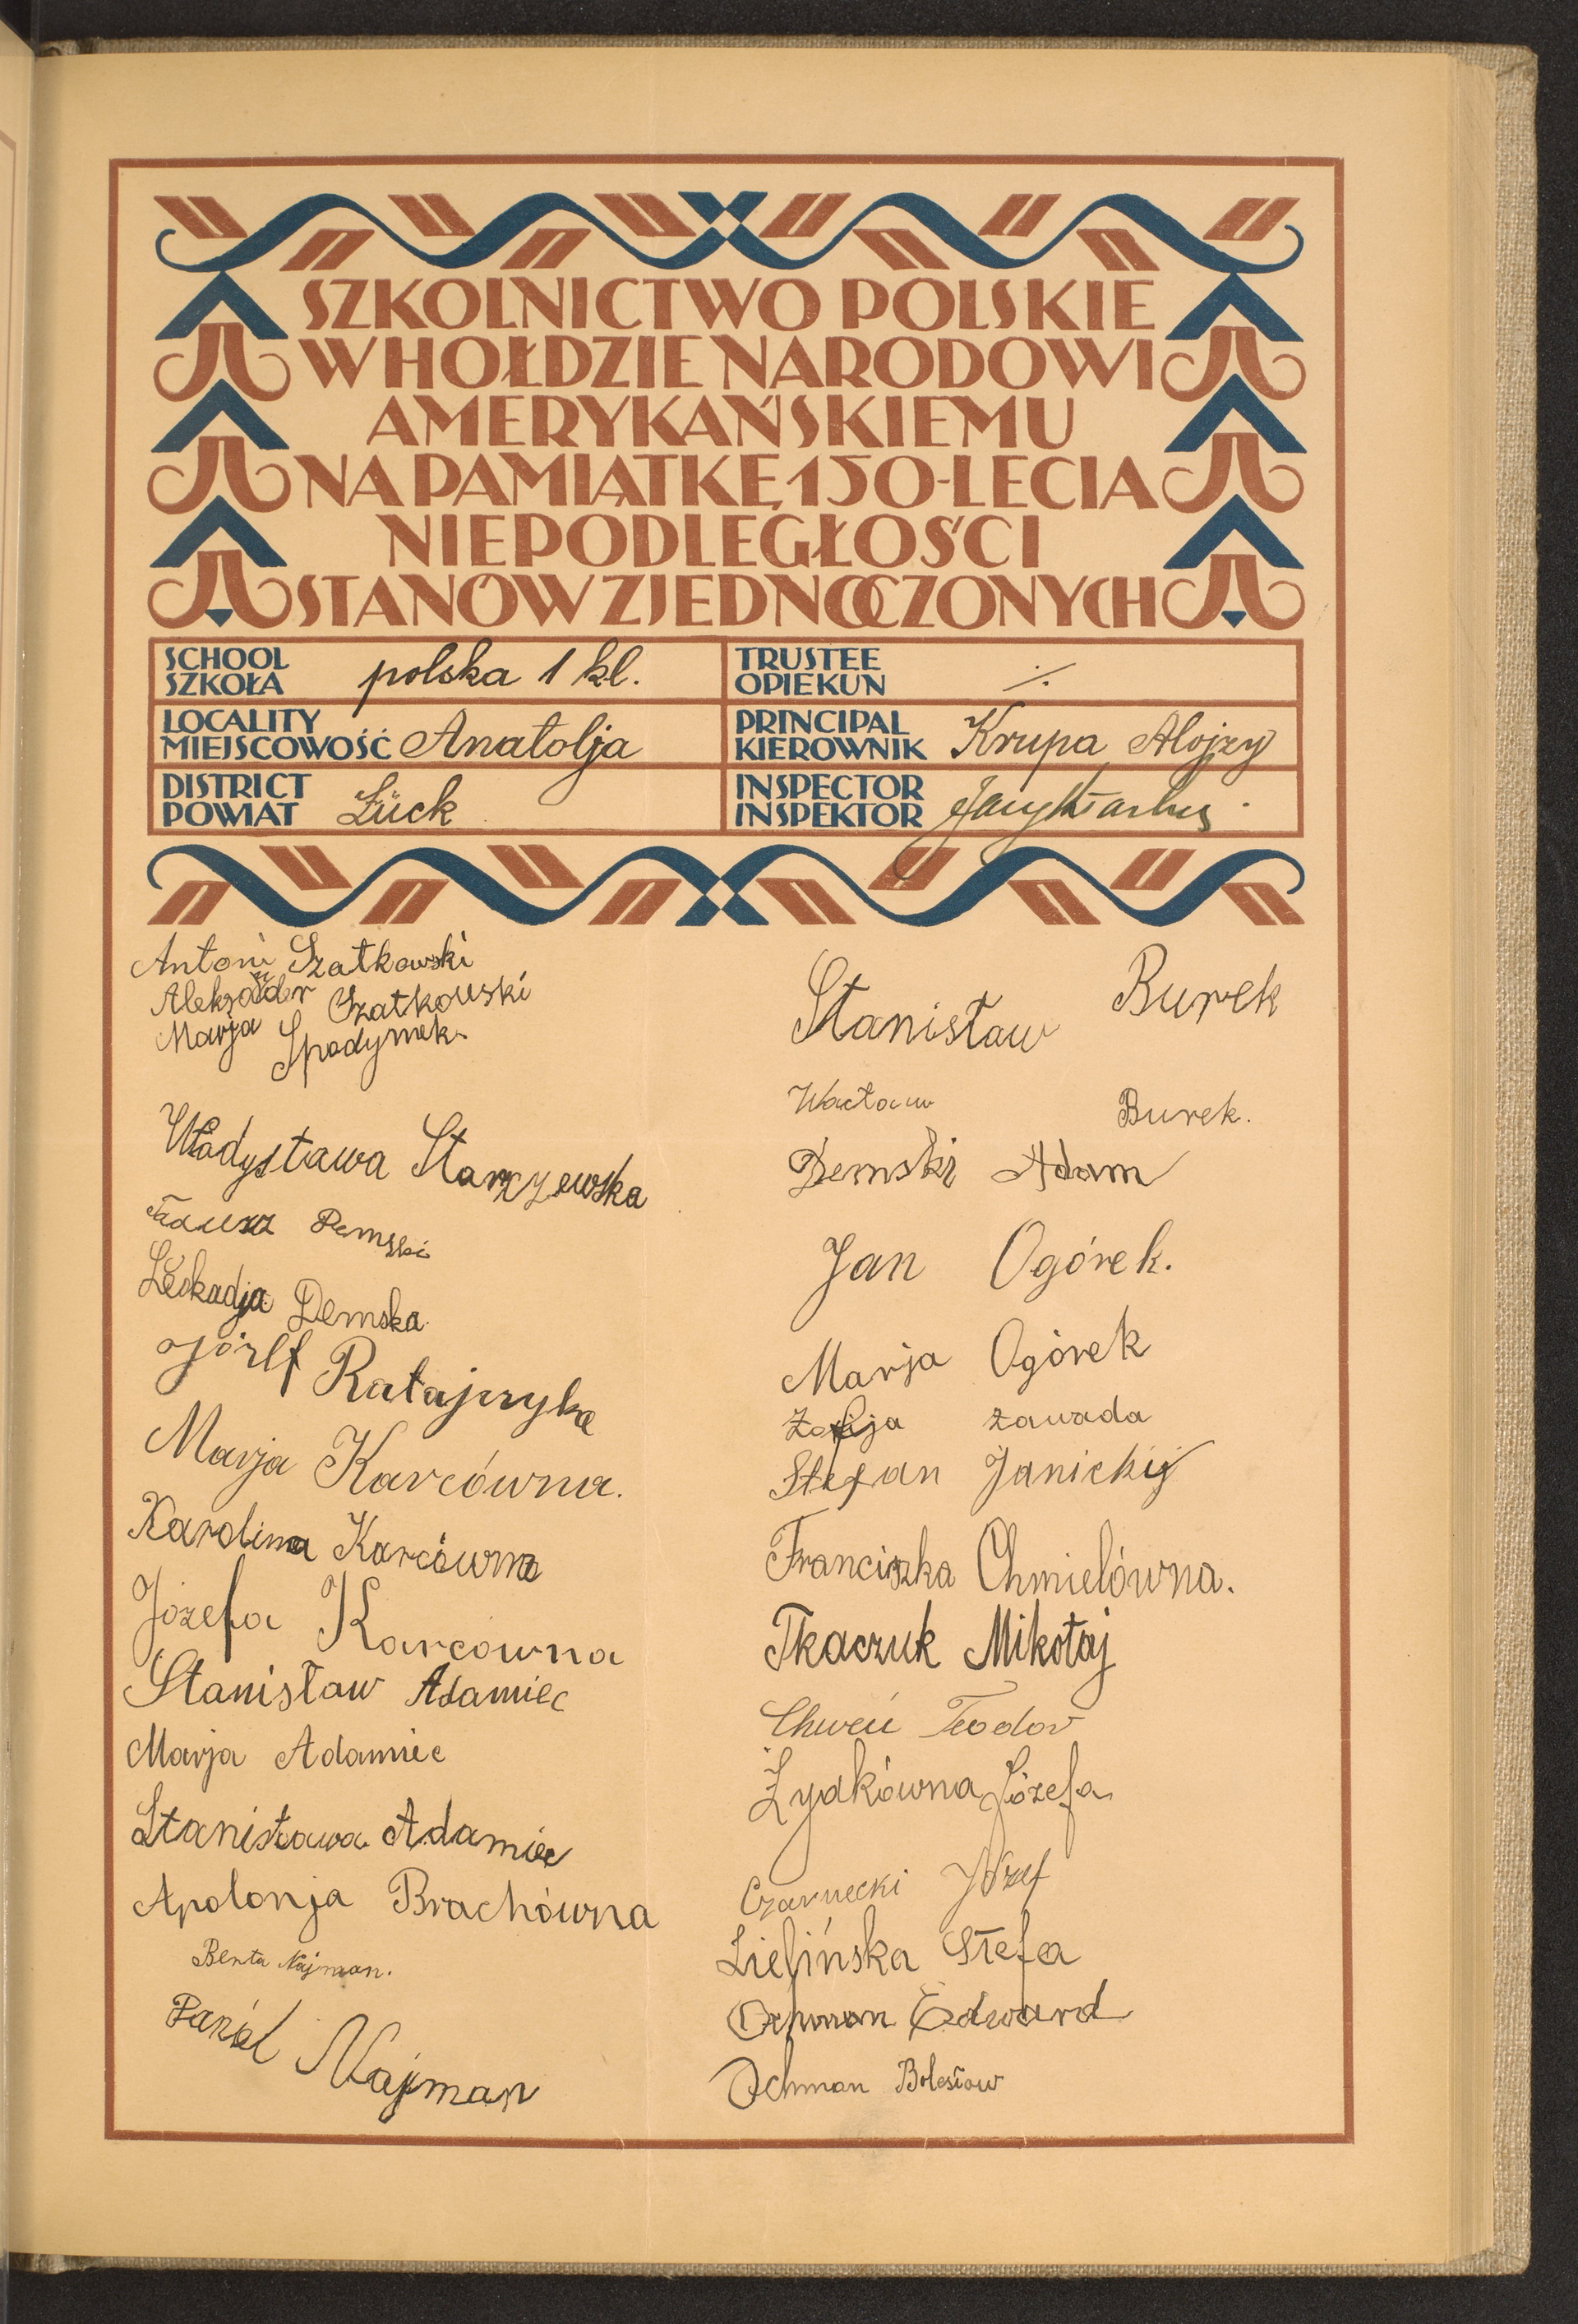 SZKOLNICTWO POLSKIE
W HOŁDZIE NARODOWI
AMERYKAŃSKIEMU
NA PAMIĄTKĘ 150-LECIA
NIEPODLEGŁOŚCI
STANÓW ZJEDNOCZONYCH
SCHOOL
SZKOŁA polska 1 kl.
TRUSTEE
OPIEKUN
LOCALITY
MIEJSCOWOŚĆ Anatolja
PRINCIPAL
KIEROWNIK Krupa Alojzy
DISTRICT
POWIAT Łuck
INSPECTOR
INSPEKTOR
Antoni Szatkowski
Aleksander Szatkowski
Marja Spodymek
Władysława Starzewska
Demski
Leokadja Demska
Józef Ratajczyk
Marja Karcówna.
Karolina Karcówna
Józefa Karcowna
Stanisław Adamiec
Marja Adamiec
Stanisława Adamiec
Apolonja Brachówna
Berta Najman.
Najman
Stanisław Burek
Wacław Burek.
Demski Adam
Jan Ogórek.
Marja Ogórek
Zofija Zawada
Stefan Janicki
Franciszka Chmielówna.
Tkaczuk Mikołaj
Teodor
Żydkówna Józefa
Czarnecki Józef
Zielińska Stefa
Ochman Edward
Ochman Bolesław